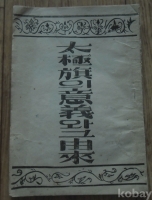 太極旗의意義와그由來
kobay